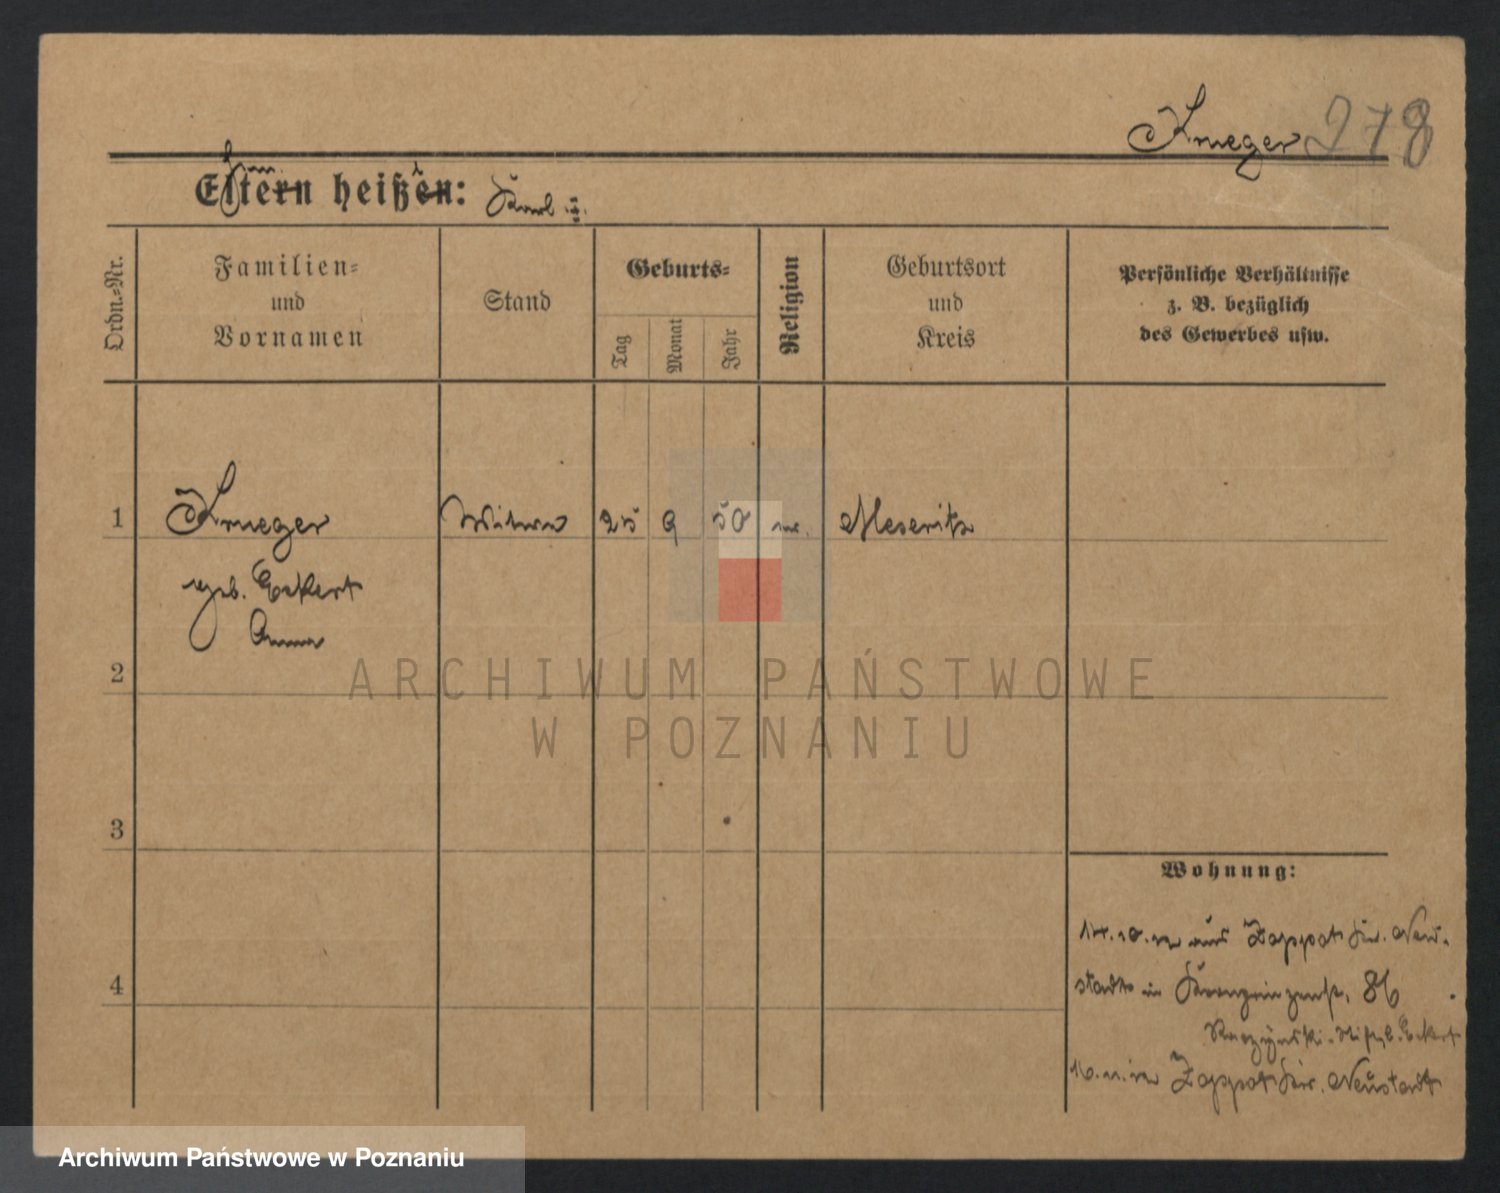 Krueger 278
Eltern heißen: Karl
Ordn.-Nr.
Familien-
und
Vornamen
Stand
Geburts-
Tag
Monat
Jahr
Religion
Geburtsort
und
Kreis
Persönliche Verhältnisse
z. B. bezüglich
des Gewerbes usw.
1 Krueger Witwe 25 9 50 ev. Meseritz
geb. Eckert
Anna
2
3
4
Wohnung:
aus Zoppot Kr. Neu-
stadt in Kronprinzenstr. 86
Raczynski. Eckert
Zoppot Kr. Neustadt
ARCHIWUM PAŃSTWOWE
W POZNANIU
Archiwum Państwowe w Poznaniu